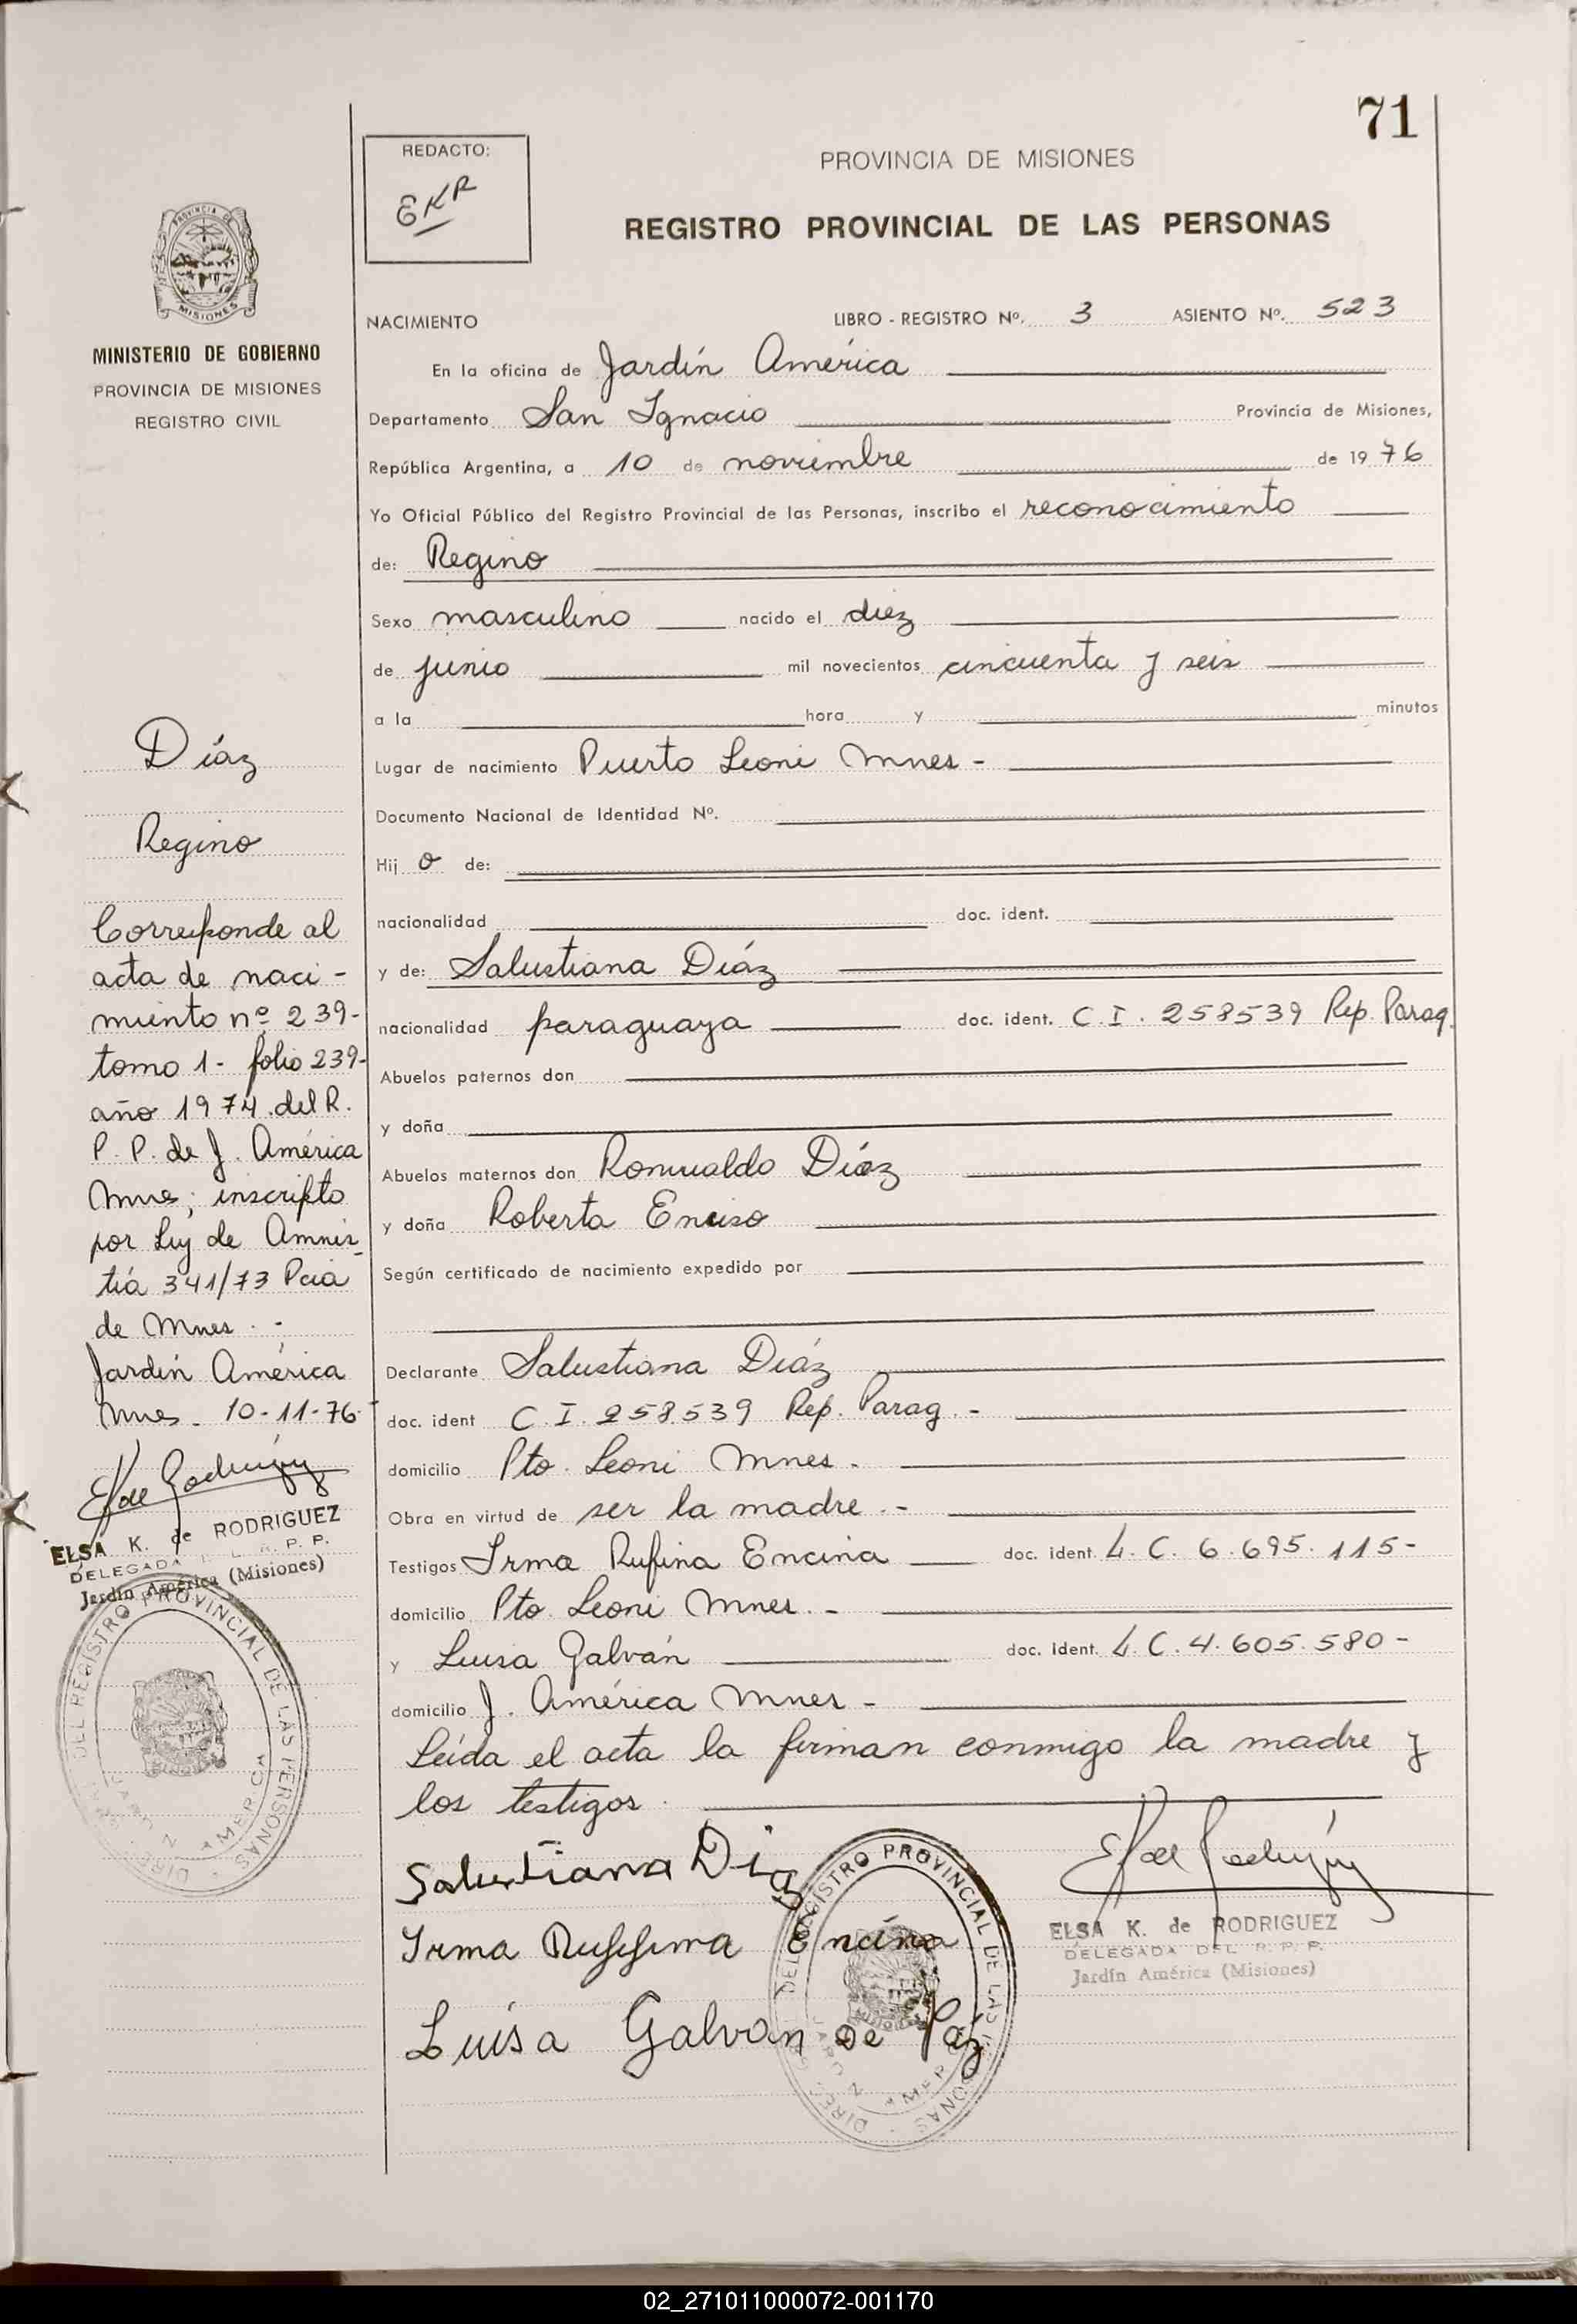 71
REDACTO:
EKR
PROVINCIA DE MISIONES
REGISTRO PROVINCIAL DE LAS PERSONAS
PROVINCIA DE
MISIONES
MINISTERIO DE GOBIERNO
PROVINCIA DE MISIONES
REGISTRO CIVIL
NACIMIENTO LIBRO - REGISTRO Nº. 3 ASIENTO Nº. 523
En la oficina de Jardín América
Departamento San Ignacio Provincia de Misiones,
República Argentina, a 10 de noviembre de 19 76
Yo Oficial Público del Registro Provincial de las Personas, inscribo el reconocimiento
de: Regino
Sexo masculino nacido el diez
de junio mil novecientos cincuenta y seis
a la hora y minutos
Lugar de nacimiento Puerto Leoni Mnes -
Documento Nacional de Identidad Nº.
Hij o de:
nacionalidad doc. ident.
y de: Salustiana Díaz
nacionalidad paraguaya doc. ident. C. I. 258539 Rep. Parag.
Abuelos paternos don
y doña
Abuelos maternos don Romualdo Díaz
y doña Roberta Enciso
Según certificado de nacimiento expedido por
Declarante Salustiana Díaz
doc. ident C I. 258.539 Rep. Parag. -
domicilio Pto. Leoni Mnes. -
Obra en virtud de ser la madre. -
Testigos Irma Rufina Encina doc. ident. L. C. 6.695.115 -
domicilio Pto. Leoni Mnes. -
y Luisa Galván doc. ident. L. C. 4.605.580 -
domicilio J. América Mnes -
Leída el acta la firman conmigo la madre y
los testigos.
Salustiana Diaz
Irma Ruffina Encina
Luisa Galvan De Paz
ELSA K. de RODRIGUEZ
DELEGADA DEL R. P. P.
Jardín América (Misiones)
DEL REGISTRO PROVINCIAL DE LAS PERSONAS
Díaz
Regino
Corresponde al
acta de naci-
miento nº 239-
tomo 1- folio 239-
año 1974 del R.
P. P. de J. América
Mnes; inscripto
por Ley de Amnis-
tía 341/73 Pcia
de Mnes. -
Jardín América
Mnes. 10-11-76
ELSA K. de RODRIGUEZ
DELEGADA D L R. P. P.
Jardín América (Misiones)
DEL REGISTRO PROVINCIAL DE LAS PERSONAS
02_271011000072-001170